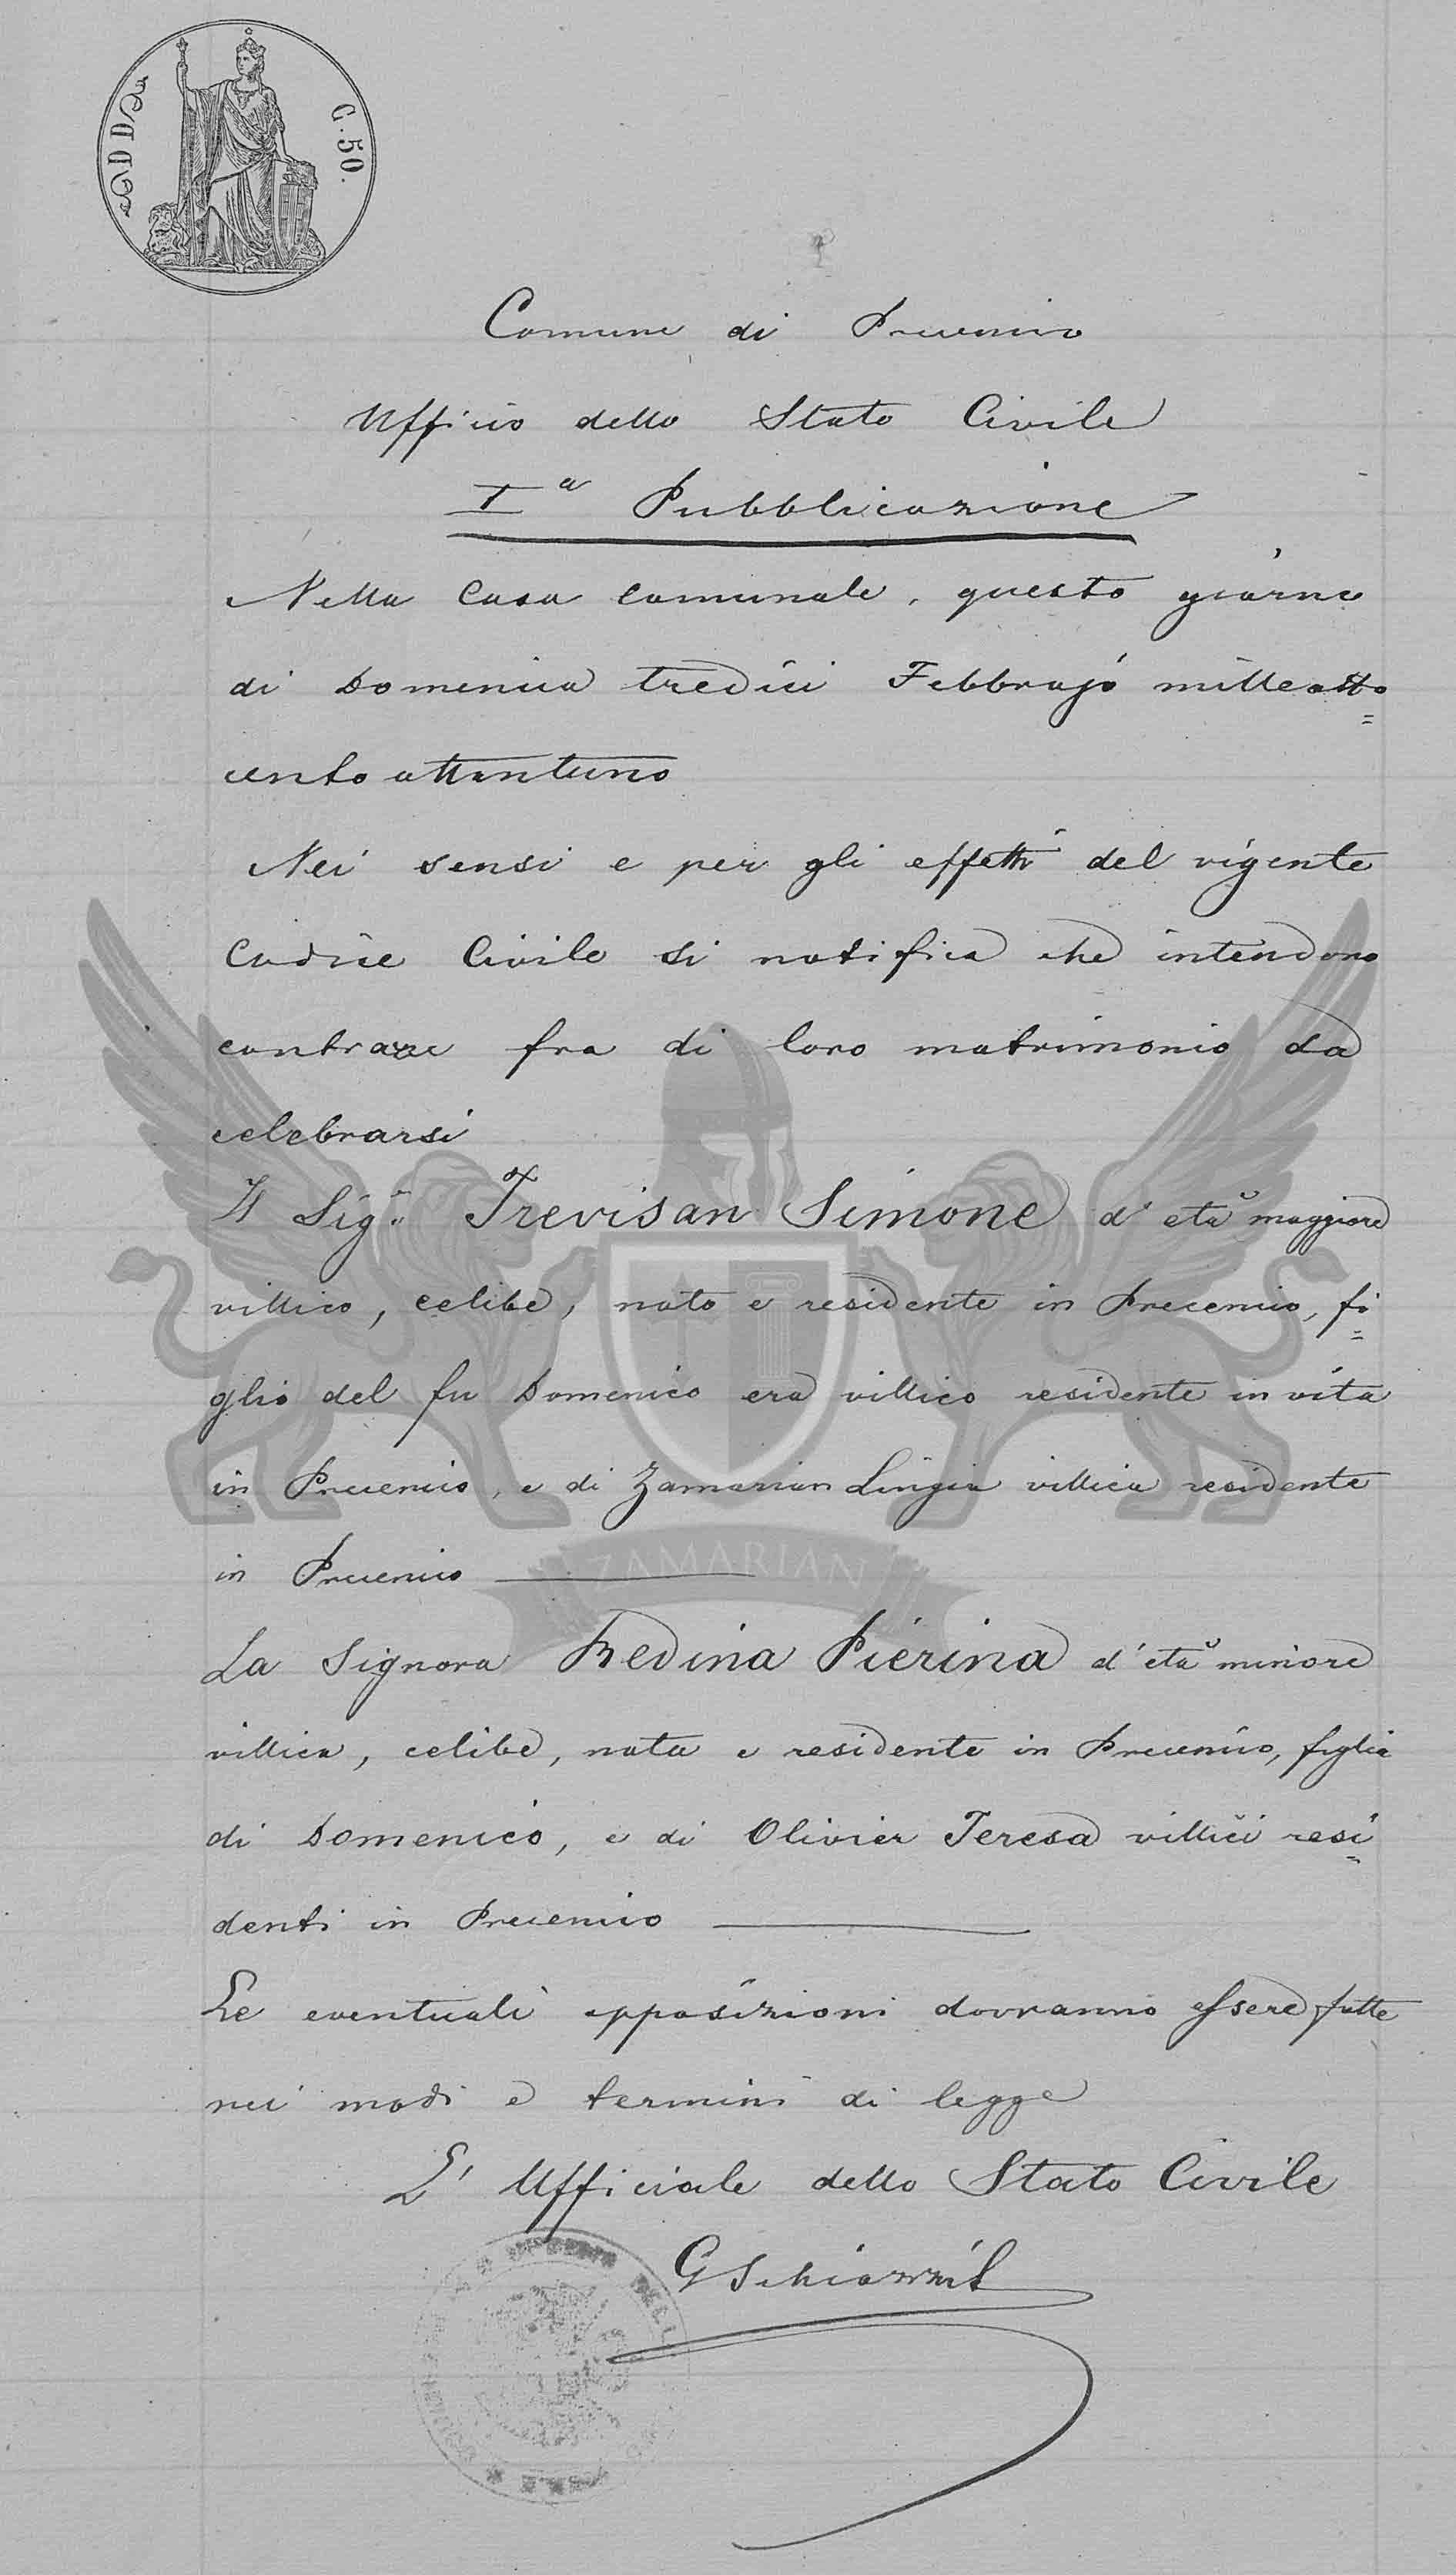 C. 50.
Comune di Precenico
Ufficio dello Stato Civile
Iª Pubblicazione
Nella Casa Comunale, questo giorno
di Domenica tredici Febbrajo milleotto=
cento ottantuno
Nei sensi e per gli effetti del vigente
Codice Civile si notifica che intendono
contrarre fra di loro matrimonio da
celebrarsi
Il Sig.r Trevisan Simone d'età maggiore
villico, celibe, nato e residente in Precenico, fi=
glio del fu Domenico era villico residente in vita
in Precenico, e di Zamarian Luigia villica residente
in Precenico
ZAMARIAN
La Signora Redina Pierina d'età minore
villica, celibe, nata e residente in Precenico, figlia
di Domenico, e di Olivier Teresa villici resi=
denti in Precenico
Le eventuali opposizioni dovranno essere fatte
nei modi e termini di legge
L'Ufficiale dello Stato Civile